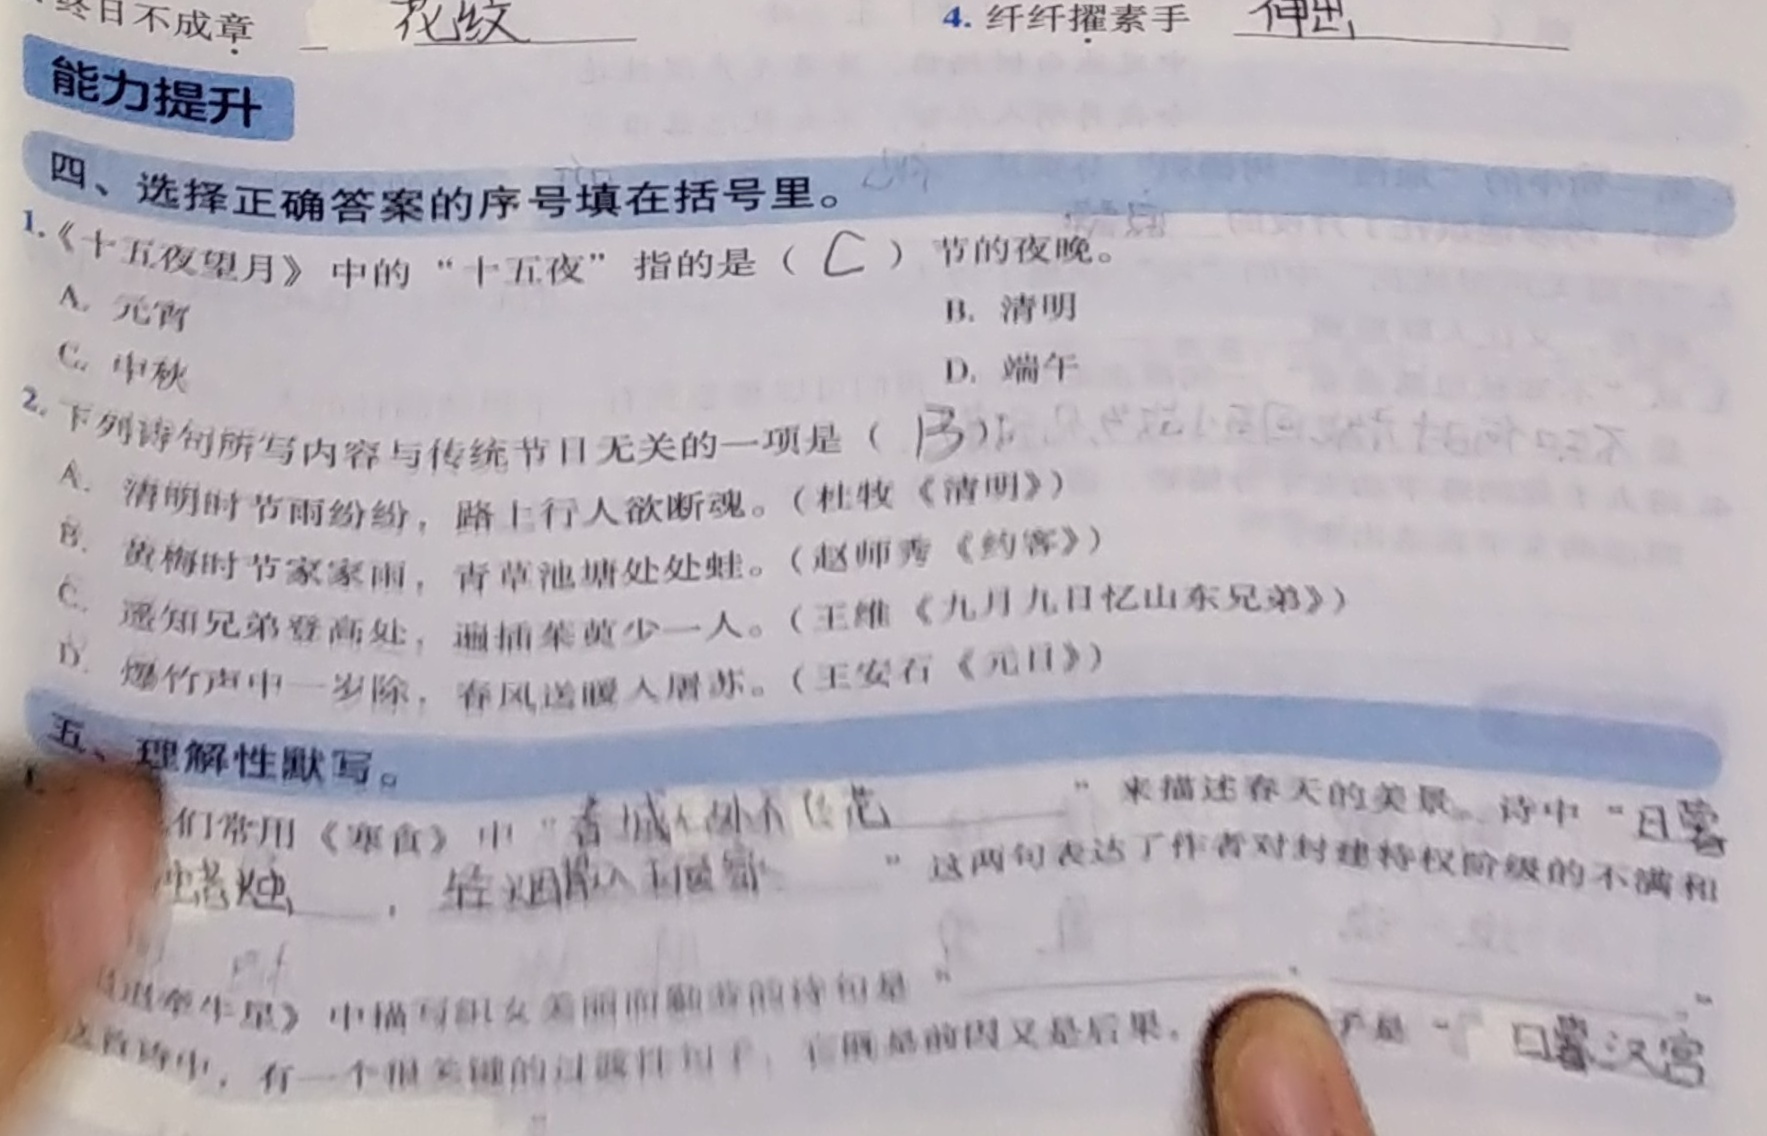 终日不成章 花纹 4. 纤纤擢素手 伸出
能力提升
四、选择正确答案的序号填在括号里。
1.《十五夜望月》中的“十五夜”指的是（ C ）节的夜晚。
A. 元宵 B. 清明
C. 中秋 D. 端午
2. 下列诗句所写内容与传统节日无关的一项是（ B ）
A. 清明时节雨纷纷，路上行人欲断魂。（杜牧《清明》）
B. 黄梅时节家家雨，青草池塘处处蛙。（赵师秀《约客》）
C. 遥知兄弟登高处，遍插茱萸少一人。（王维《九月九日忆山东兄弟》）
D. 爆竹声中一岁除，春风送暖入屠苏。（王安石《元日》）
五、理解性默写。
们常用《寒食》中“春城无处不 花”来描述春天的美景。诗中“日暮
蜡烛，轻烟 入 ”这两句表达了作者对封建特权阶级的不满和
牵牛星》中描写织女美丽 的诗句是“ ， 。”
这首诗中，有一个很关键的过渡性句子，它既是前因又是后果。 子是“日暮汉宫